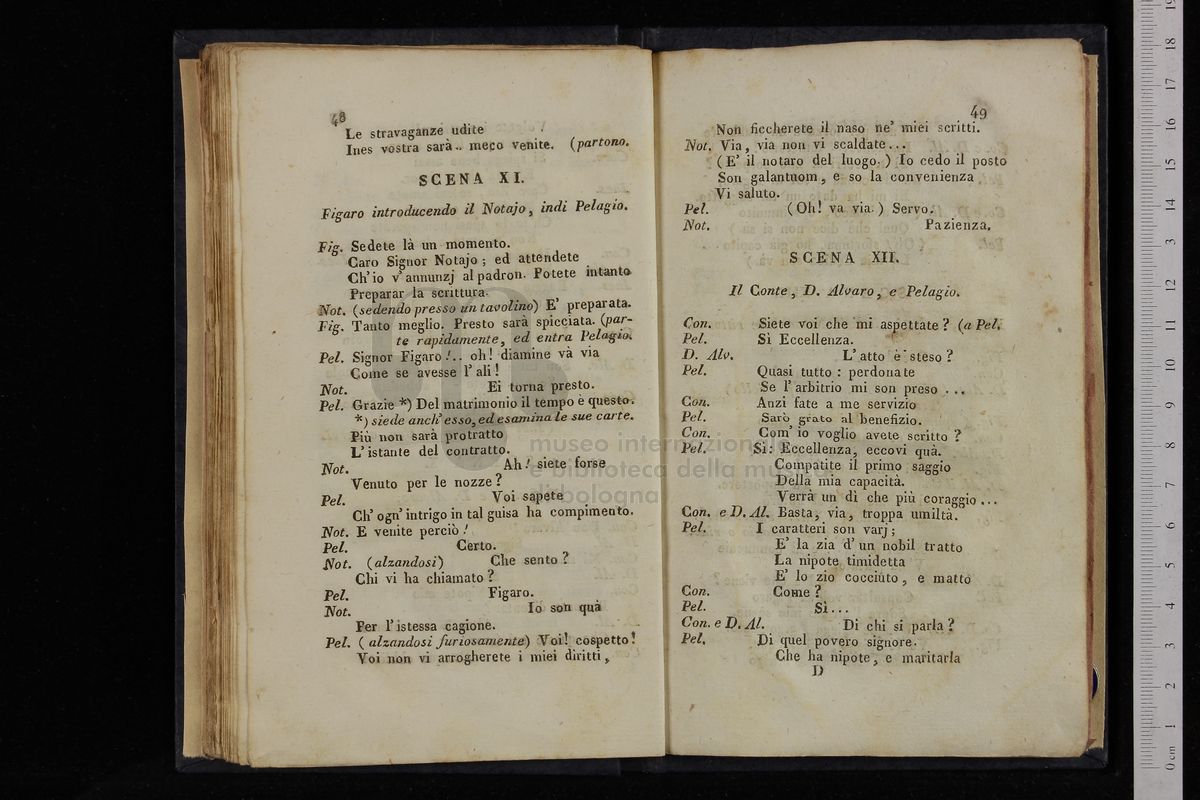 48
Le stravaganze udite
Ines vostra sarà.. meco venite. (partono.
SCENA XI.
Figaro introducendo il Notajo, indi Pelagio.
Fig. Sedete là un momento.
Caro Signor Notajo; ed attendete
Ch' io v' annunzj al padron. Potete intanto
Preparar la scrittura.
Not. (sedendo presso un tavolino) E' preparata.
Fig. Tanto meglio. Presto sarà spicciata. (par-
te rapidamente, ed entra Pelagio.
Pel. Signor Figaro!.. oh! diamine và via
Come se avesse l' ali!
Not. Ei torna presto.
Pel. Grazie *) Del matrimonio il tempo è questo.
*) siede anch' esso, ed esamina le sue carte.
Più non sarà protratto
L' istante del contratto.
Not. Ah! siete forse
Venuto per le nozze?
Pel. Voi sapete
Ch' ogn' intrigo in tal guisa ha compimento.
Not. E venite perciò!
Pel. Certo.
Not. (alzandosi) Che sento?
Chi vi ha chiamato?
Pel. Figaro.
Not. Io son quà
Per l' istessa cagione.
Pel. (alzandosi furiosamente) Voi! cospetto!
Voi non vi arrogherete i miei diritti,
49
Non ficcherete il naso ne' miei scritti.
Not. Via, via non vi scaldate...
(E' il notaro del luogo.) Io cedo il posto
Son galantuom, e so la convenienza
Vi saluto.
Pel. (Oh! va via.) Servo.
Not. Pazienza.
SCENA XII.
Il Conte, D. Alvaro, e Pelagio.
Con. Siete voi che mi aspettate? (a Pel.
Pel. Sì Eccellenza.
D. Alv. L' atto è steso?
Pel. Quasi tutto: perdonate
Se l' arbitrio mi son preso ...
Con. Anzi fate a me servizio
Pel. Sarò grato al benefizio.
Con. Com' io voglio avete scritto?
Pel. Sì: Eccellenza, eccovi quà.
Compatite il primo saggio
Della mia capacità.
Verrà un dì che più coraggio...
Con. e D. Al. Basta, via, troppa umiltà.
Pel. I caratteri son varj;
E' la zia d' un nobil tratto
La nipote timidetta
E' lo zio cocciuto, e matto
Con. Come?
Pel. Sì...
Con. e D. Al. Di chi si parla?
Pel. Di quel povero signore.
Che ha nipote, e maritarla
D
museo internazionale
e biblioteca della musica
di bologna
0 cm 1 2 3 4 5 6 7 8 9 10 11 12 13 14 15 16 17 18 19